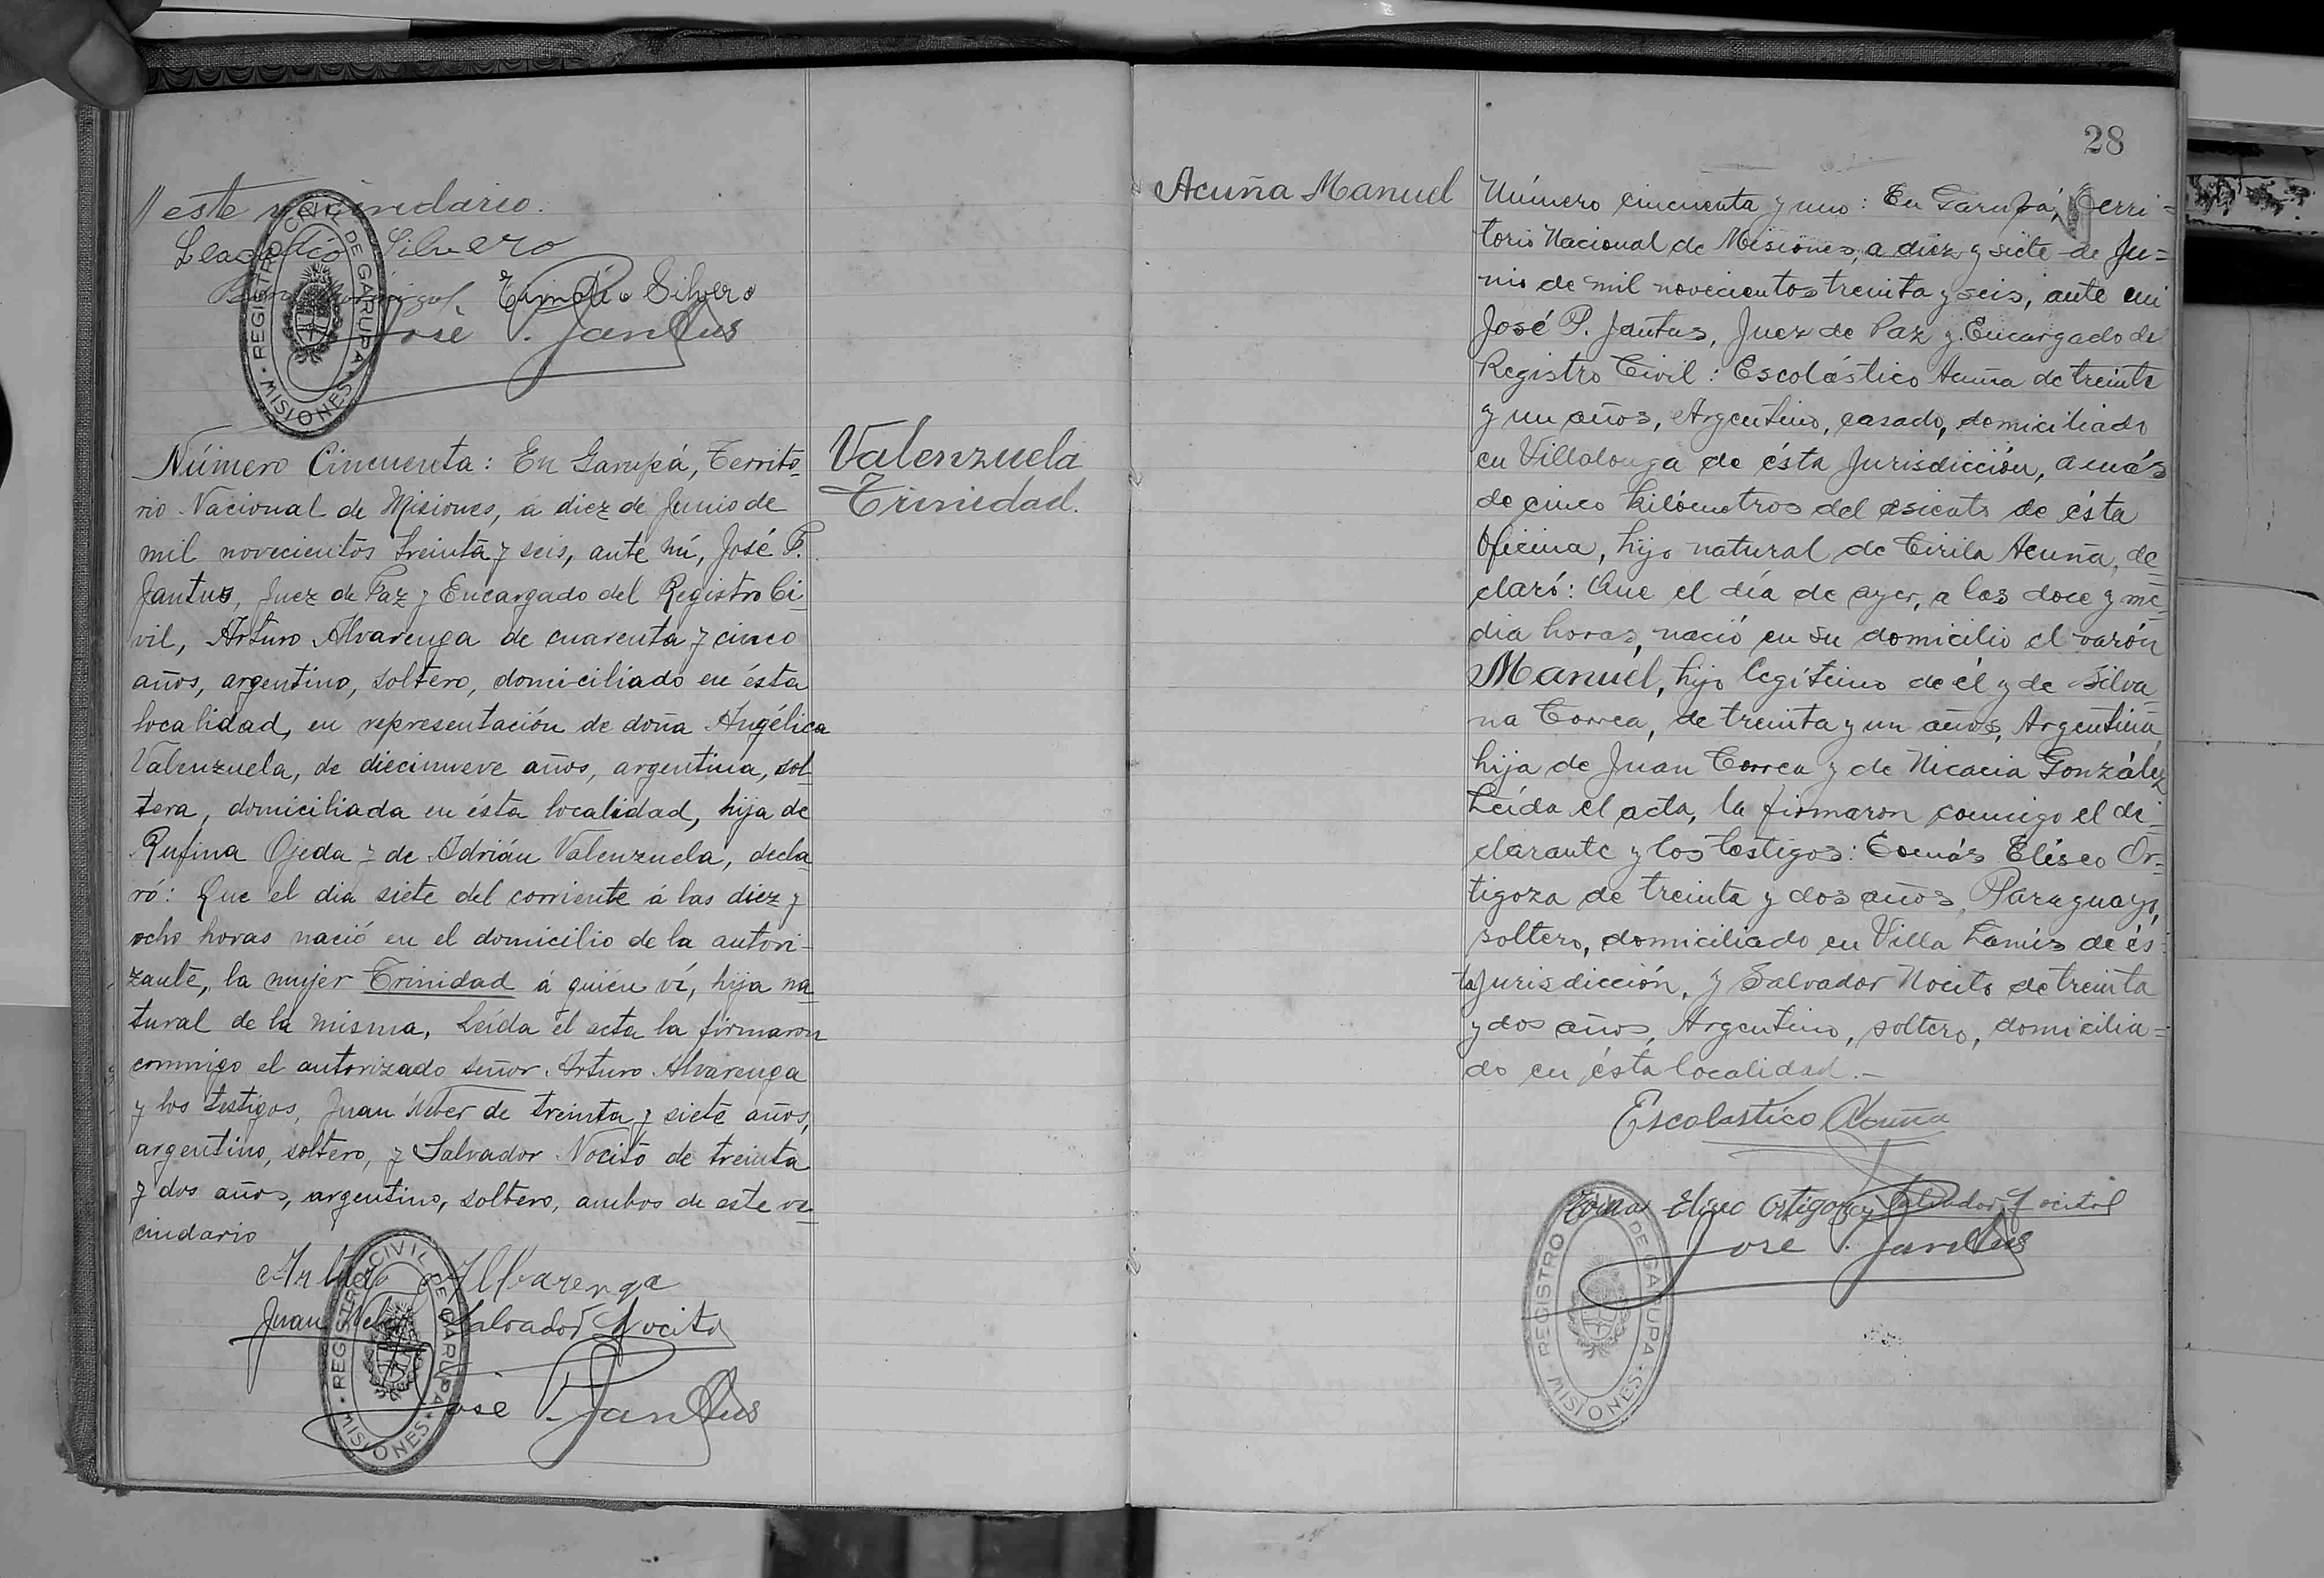 // este vecindario.
Leocadio Silvero
Trinidio Silvero
José P. Jantus
REGISTRO CIVIL DE GARUPA
MISIONES
Número Cincuenta: En Garupá, Territo-
rio Nacional de Misiones, á diez de Junio de
mil novecientos treinta y seis, ante mí, José P.
Jantus, Juez de Paz y Encargado del Registro Ci-
vil, Arturo Alvarenga de cuarenta y cinco
años, argentino, soltero, domiciliado en ésta
localidad, en representación de doña Angélica
Valenzuela, de diecinueve años, argentina, sol-
tera, domiciliada en ésta localidad, hija de
Rufina Ojeda y de Adrián Valenzuela, decla-
ró: Que el dia siete del corriente á las diez y
ocho horas nació en el domicilio de la autori-
zante, la mujer Trinidad á quién ví, hija na-
tural de la misma. Leída el acta la firmaron
conmigo el autorizado señor Arturo Alvarenga
y los testigos, Juan Weber de treinta y siete años,
argentino, soltero, y Salvador Nocito de treinta
y dos años, argentino, soltero, ambos de este ve-
cindario
Arturo Alvarenga
Juan Weber Salvador Nocito
José P. Jantus
REGISTRO CIVIL DE GARUPA
MISIONES
Valenzuela
Trinidad.
28
Acuña Manuel
Número cincuenta y uno: En Garupá, Terri=
torio Nacional de Misiones, a diez y siete de Ju=
nio de mil novecientos treinta y seis, ante mi
José P. Jantus, Juez de Paz y Encargado de
Registro Civil: Escolástico Acuña de treinta
y un años, Argentino, casado, domiciliado
en Villalonga de ésta Jurisdicción, a más
de cinco kilómetros del asiento de ésta
Oficina, hijo natural de Cirila Acuña, de
claró: Que el día de ayer, a las doce y me-
dia horas, nació en su domicilio el varón
Manuel, hijo legítimo de él y de Silva
na Correa, de treinta y un años, Argentina,
hija de Juan Correa y de Nicacia González
Leída el acta, la firmaron conmigo el de-
clarante y los testigos: Tomás Eliseo Or=
tigoza de treinta y dos años, Paraguayo,
soltero, domiciliado en Villa Lanús de és=
ta Jurisdicción, y Salvador Nocito de treinta
y dos años, Argentino, soltero, domicilia=
do en ésta localidad.-
Escolastico Acuña
Tomas Eliseo Ortigoza Salvador Nocito
José P. Jantus
REGISTRO DE GARUPA
MISIONES